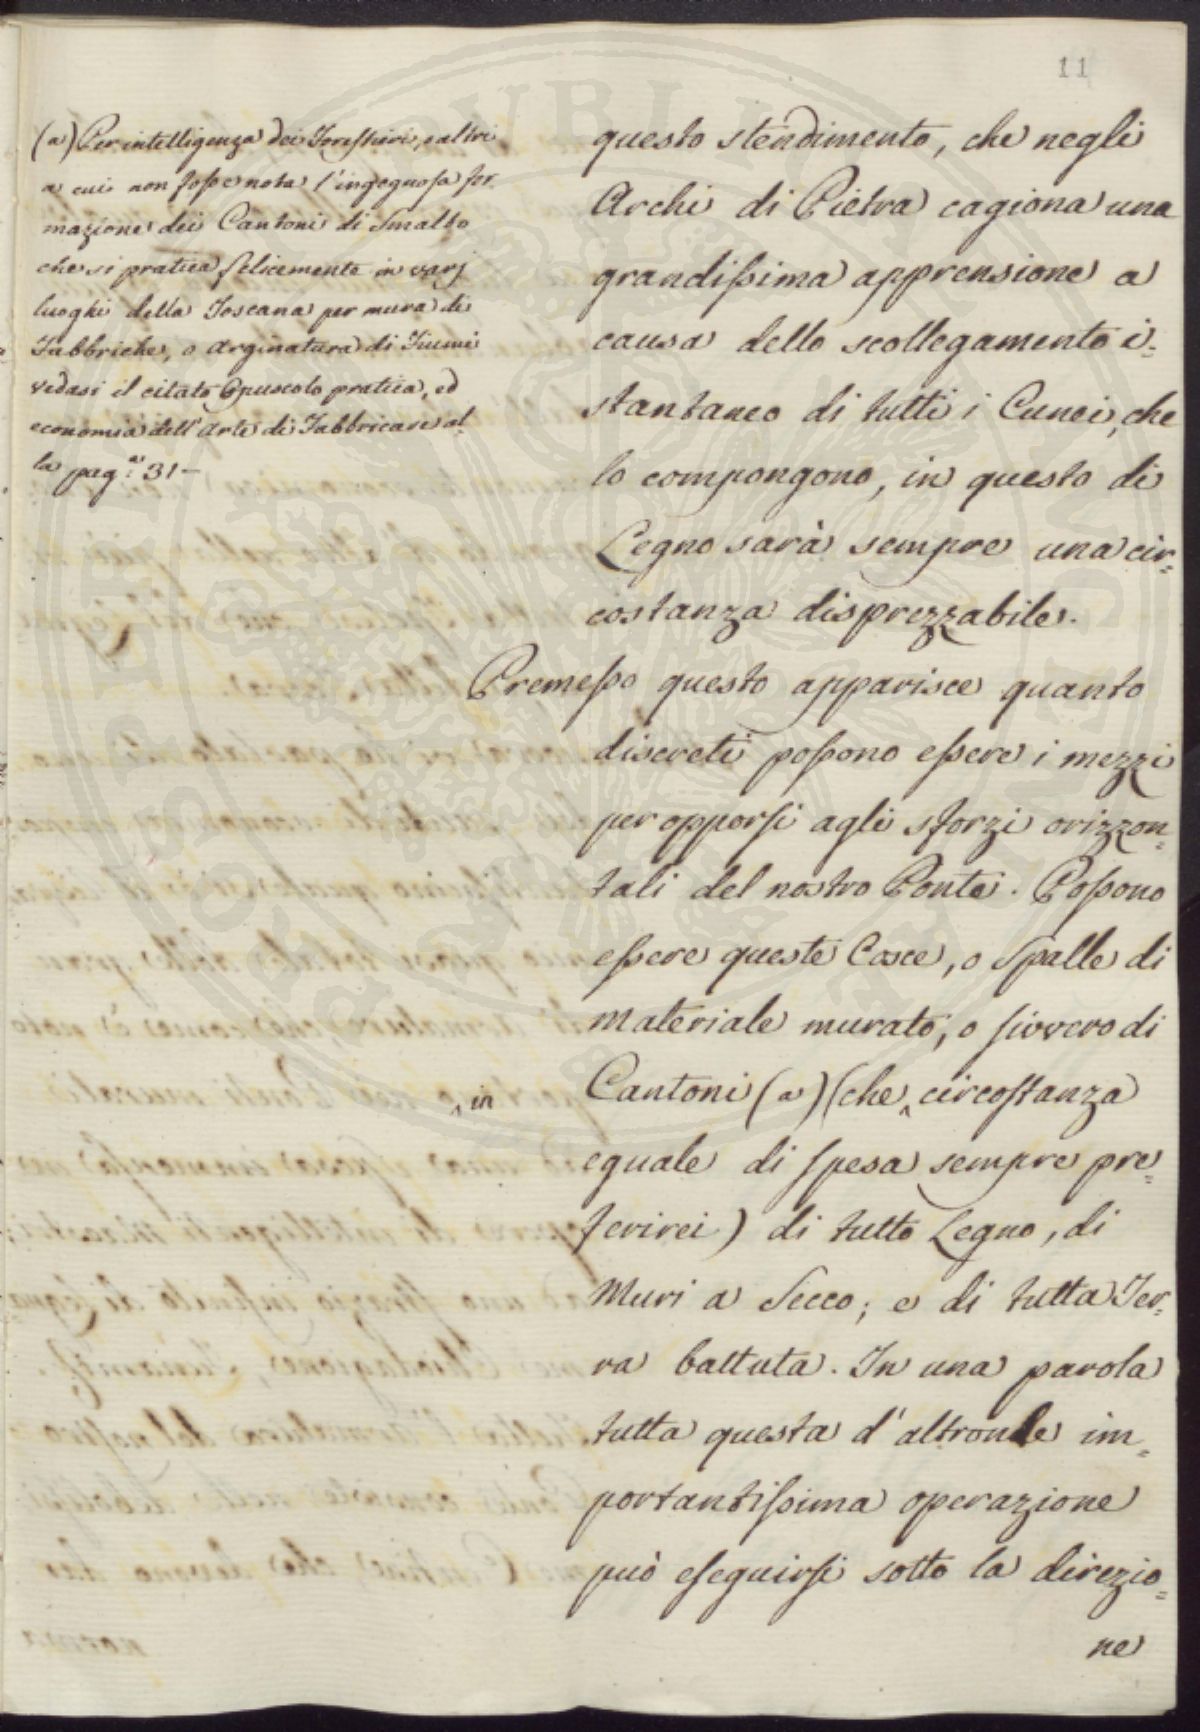 11
(a) Per intelligenza dei Forestieri, e altri
a cui non fosse nota l'ingegnosa for
mazione dei Cantoni di Smalto
che si pratica felicemente in varj
luoghi della Toscana per mura di
Fabbriche, o arginatura di Fiumi
vedasi il citato Opuscolo pratica, ed
economia dell'Arte di Fabbricare al=
la pag.ª 31-
questo stendimento, che negli
Archi di Pietra cagiona una
grandissima apprensione a
causa dello scollegamento i=
stantaneo di tutti i Cunei, che
lo compongono, in questo di
Legno sarà sempre una cir=
costanza disprezzabile.
Premesso questo apparisce quanto
discreti possono essere i mezzi
per opporsi agli sforzi orizzon=
tali del nostro Ponte. Possono
essere queste Cosce, o Spalle di
materiale murato, o sivvero di
Cantoni (a) (che ^ in circostanza
eguale di spesa sempre pre=
ferirei) di tutto Legno, di
Muri a Secco; e di tutta Ter=
ra battuta. In una parola
tutta questa d'altronde im=
portantissima operazione
può eseguirsi sotto la direzio=
ne